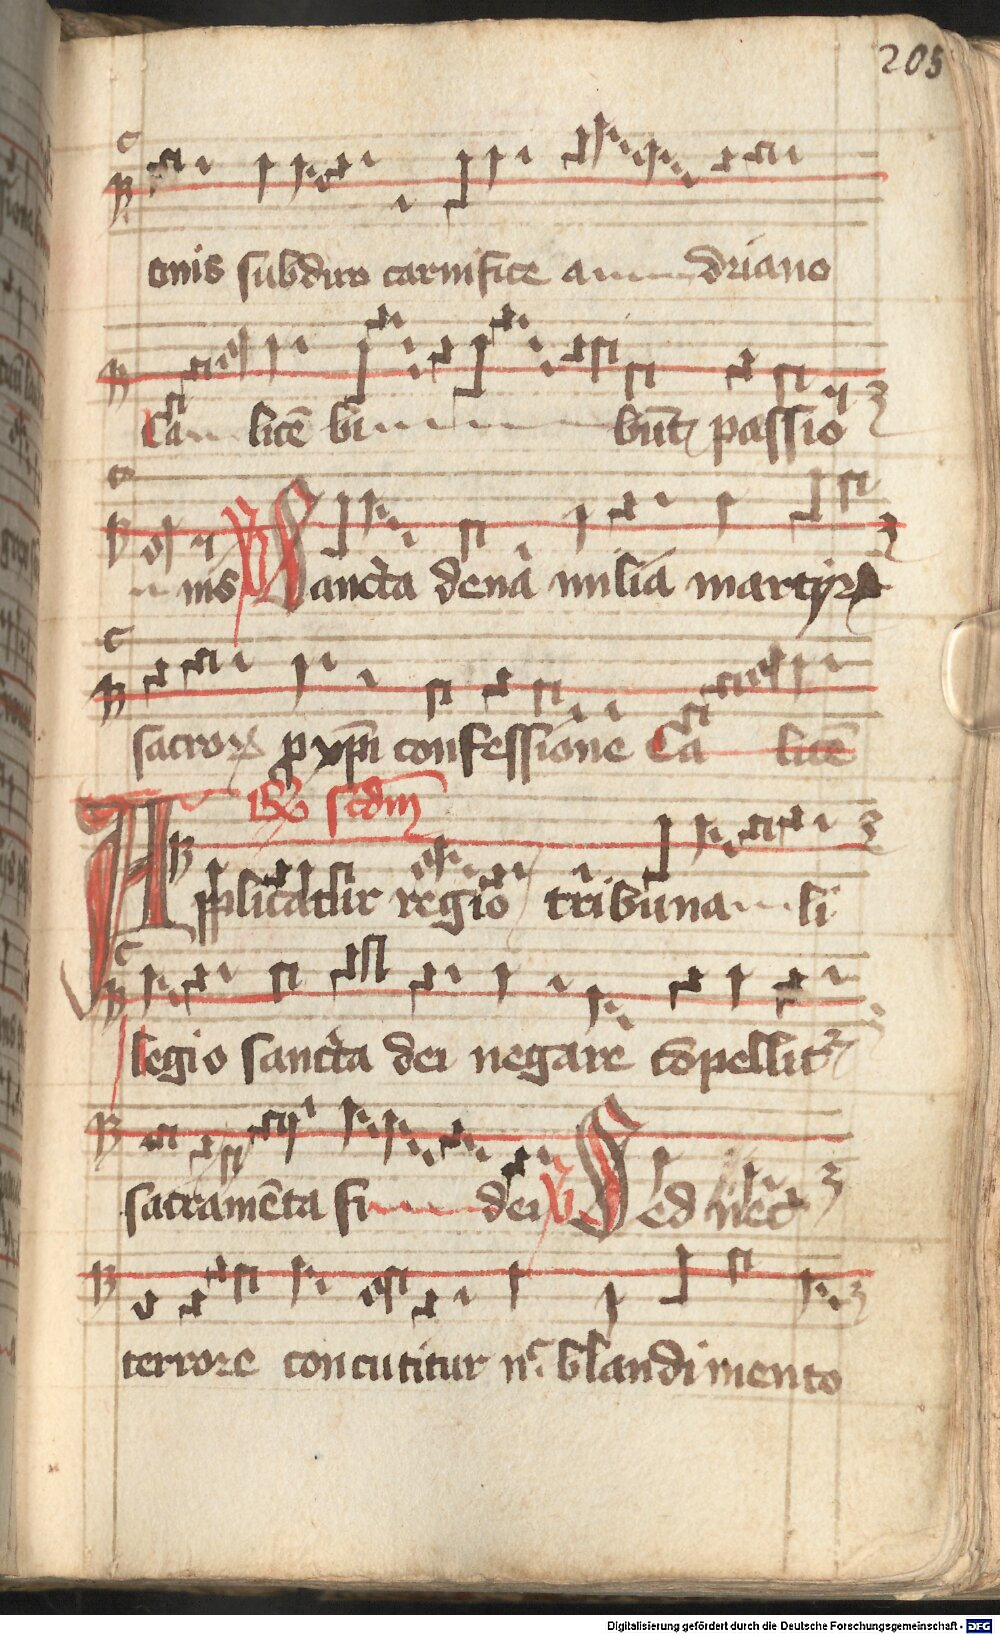 205
onis subdiro carnifice a driano
Ca licē bi būt passio
nis V Sancta dena milia martyrꝝ
sacroꝝ ꝓ xp̄i confessione Ca licē
Rx scdm
Applicatur regio tribuna li
legio sancta dei negare cōpellit᷑
sacramēta fi dei V Sed nec
terrore concutitur nᶜ blandimento
Digitalisierung gefördert durch die Deutsche Forschungsgemeinschaft - DFG